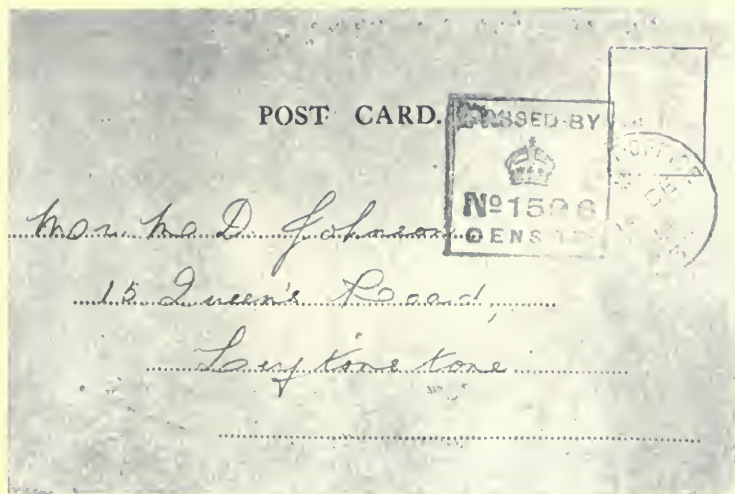 POST CARD.
PASSED BY
No 1596
CENSOR
Mr. D. Johnson
15 Queen's Road,
Leytonstone